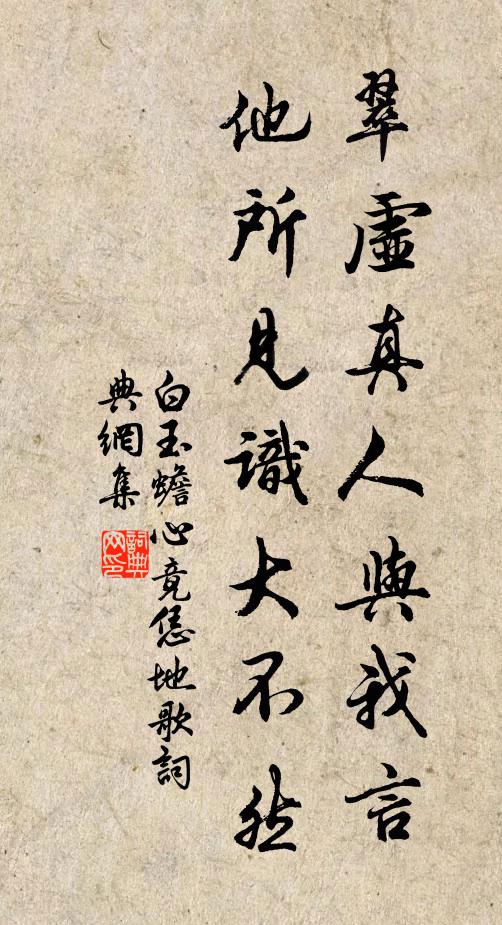 翠虛真人與我言
他所見識大不然
白玉蟾心竟恁地歌詞
典網集
詞典
网印